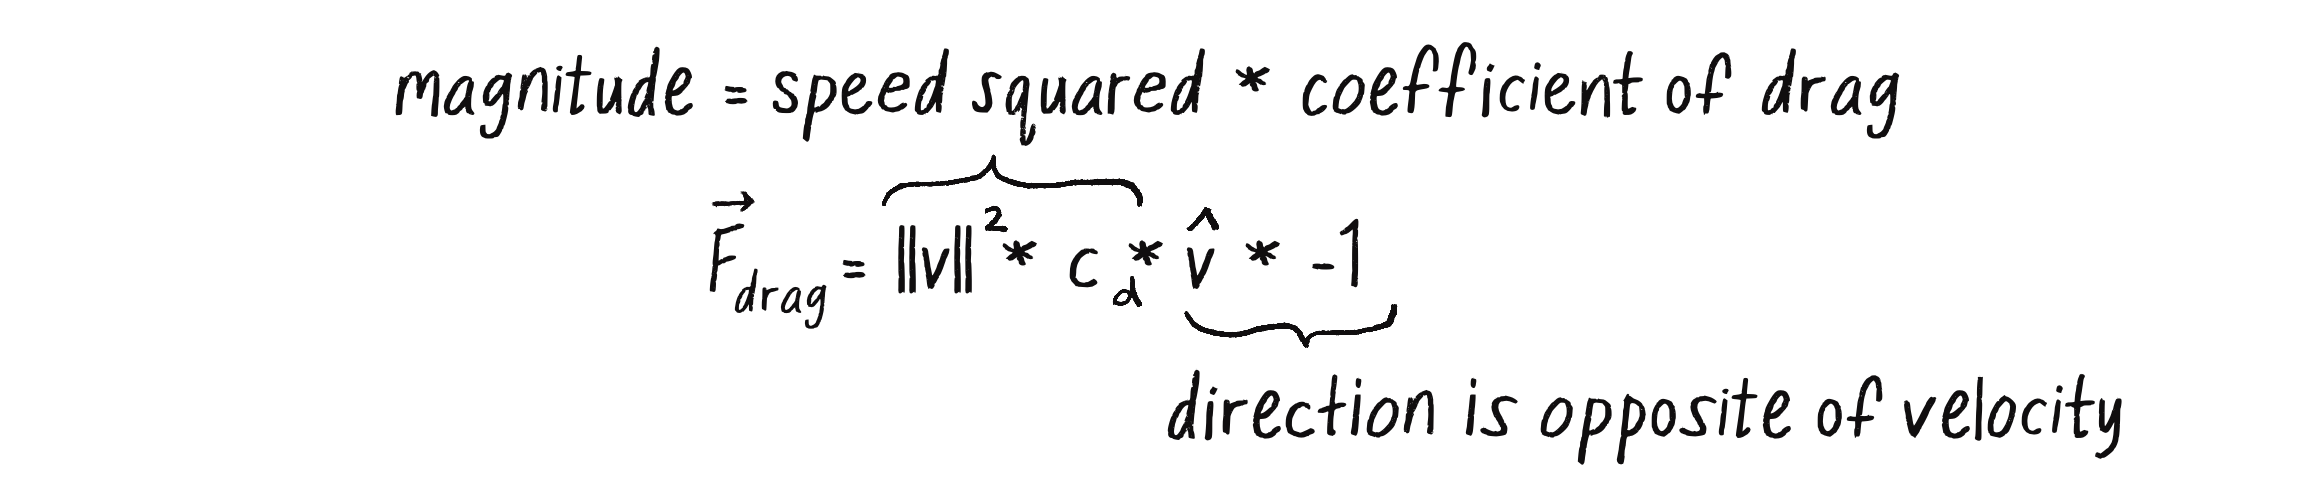 magnitude = speed squared * coefficient of drag
F⃗drag = ||v||² * cd * v̂ * -1
direction is opposite of velocity